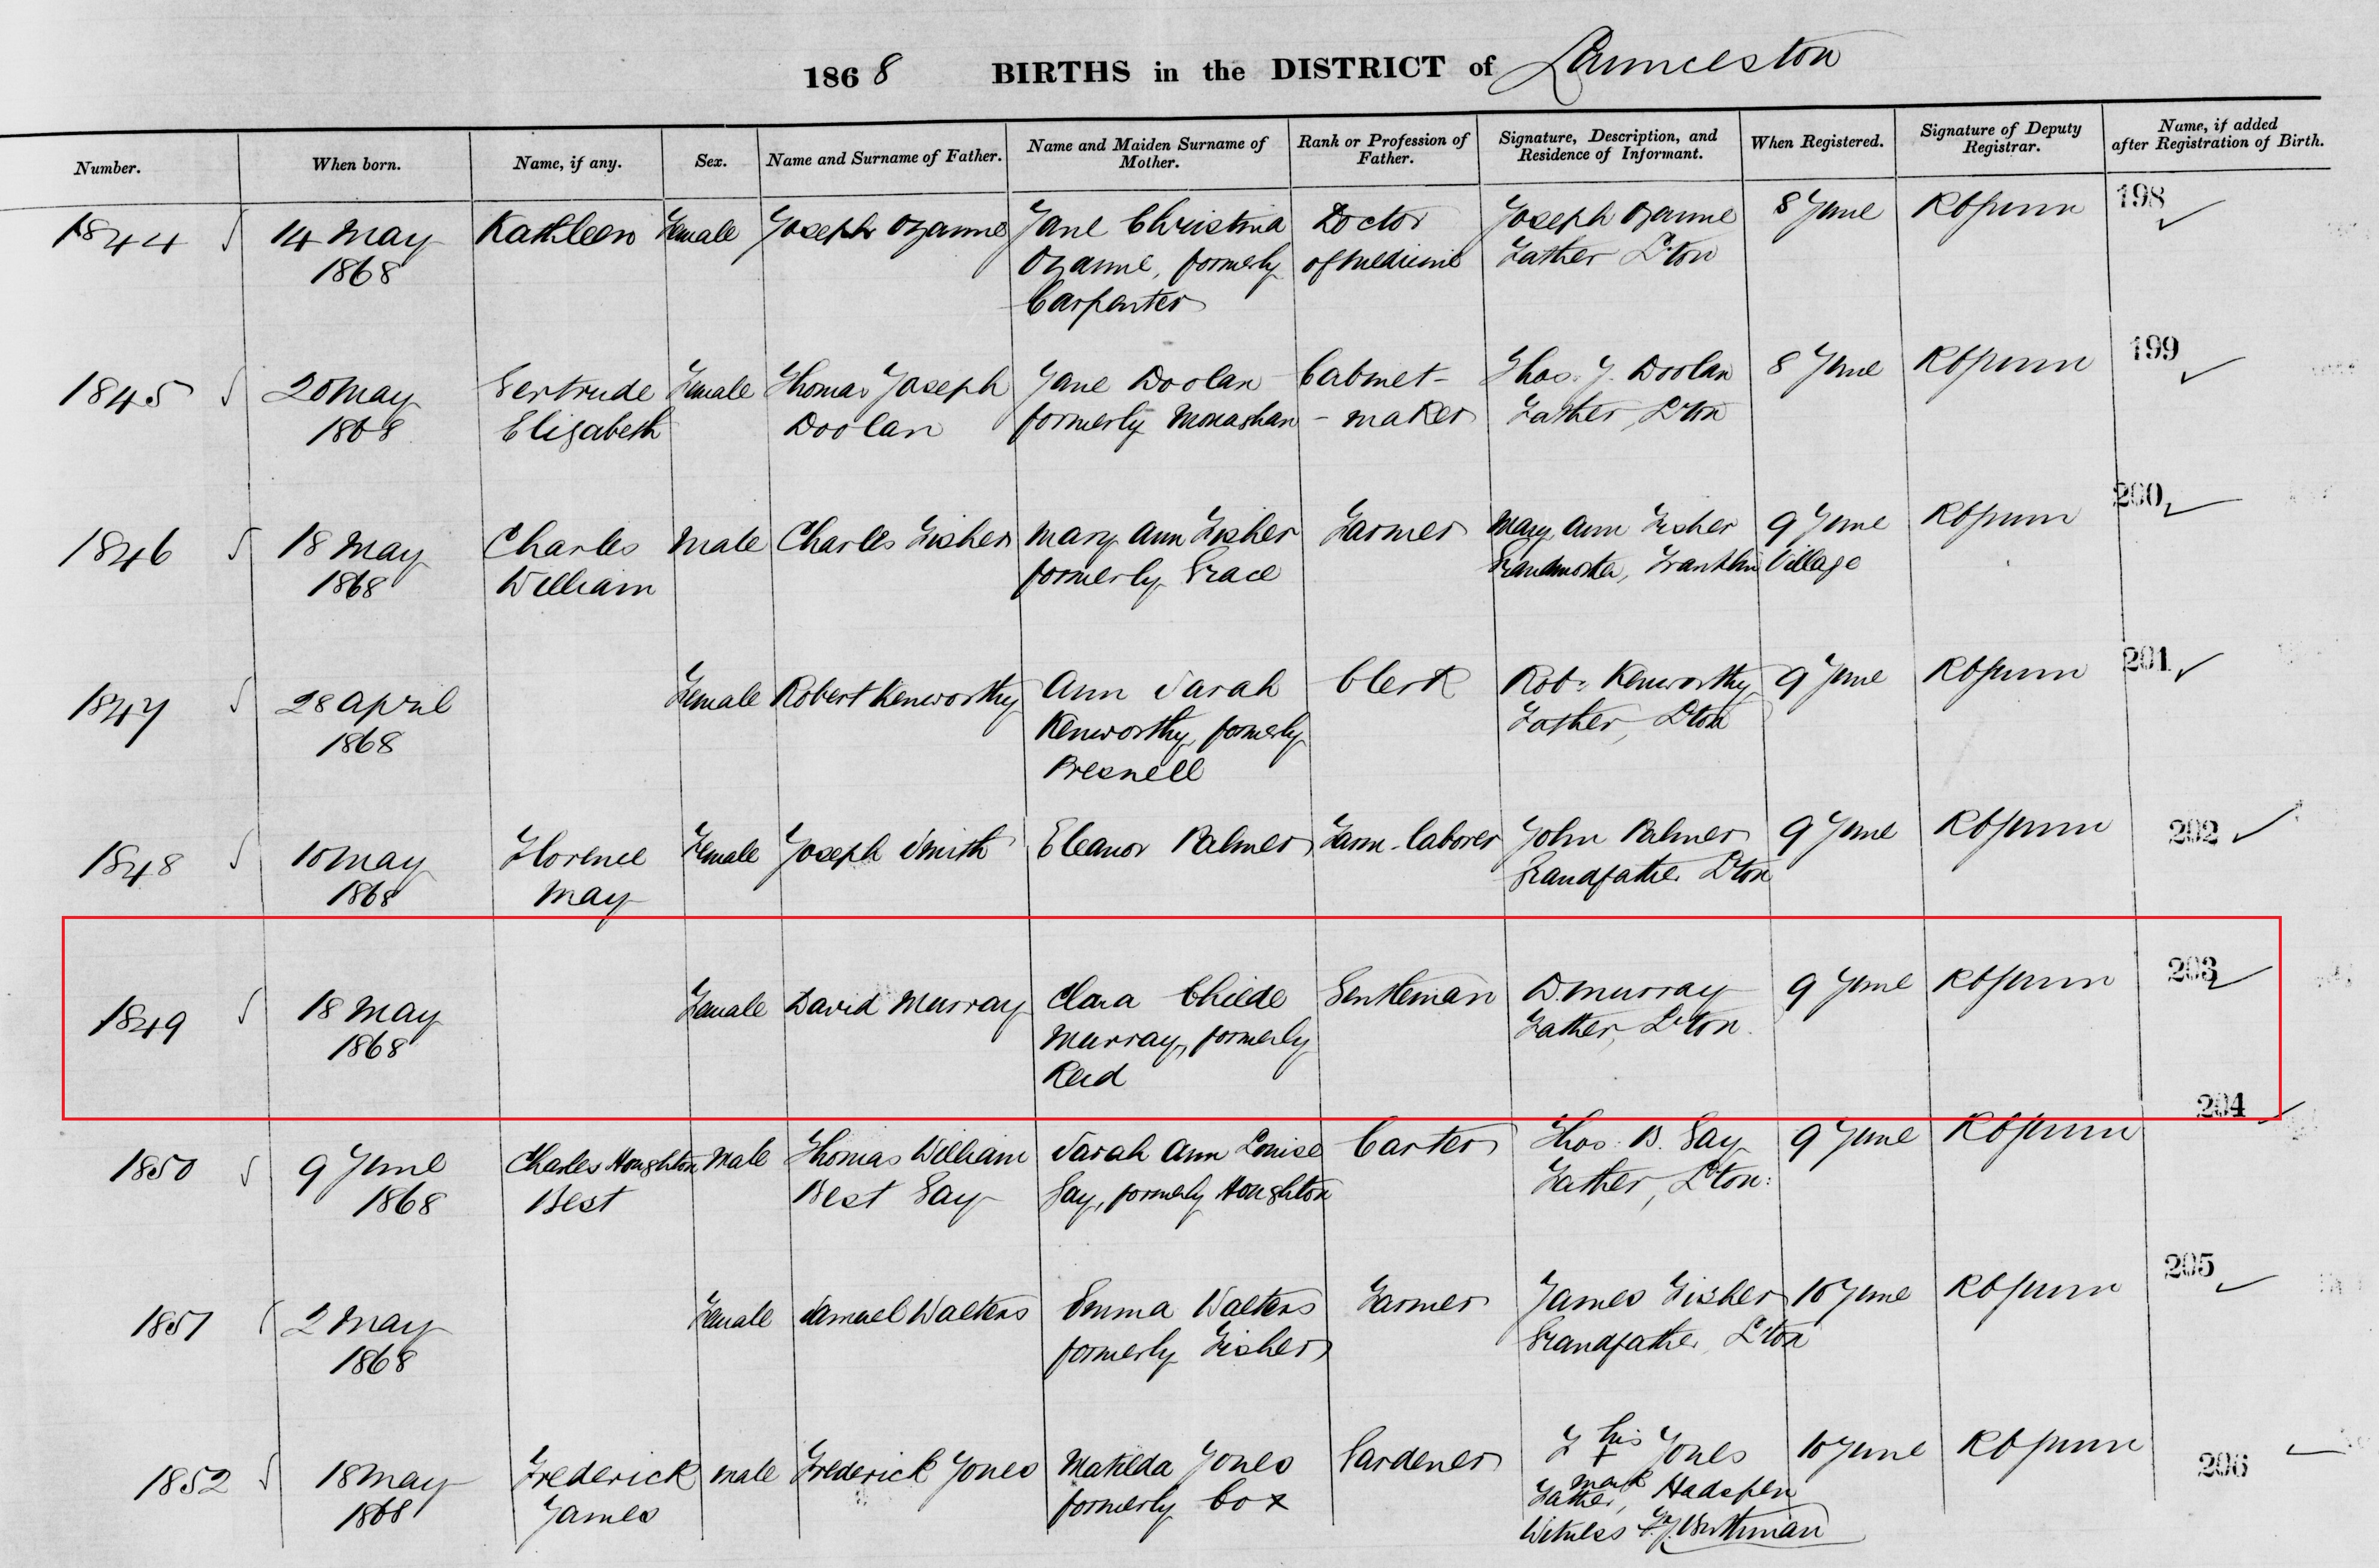 1868 BIRTHS in the DISTRICT of Launceston
Number. When born. Name, if any. Sex. Name and Surname of Father. Name and Maiden Surname of Mother. Rank or Profession of Father. Signature, Description, and Residence of Informant. When Registered. Signature of Deputy Registrar. Name, if added after Registration of Birth.
198
1844 14 May Kathleen Female Joseph Ozanne Jane Christina Doctor Joseph Ozanne 8 June
1868 Ozanne, formerly of medicine Father L'ton
Carpenter
199
1845 20 May Gertrude Female Thomas Joseph Jane Doolan Cabinet- Thos. J. Doolan 8 June
1868 Elizabeth Doolan formerly Monaghan - maker Father, L'ton
200
1846 18 May Charles Male Charles Fisher Mary Ann Fisher Farmer Mary Ann Fisher 9 June
1868 William formerly Grace Grandmother, Franklin Village
201
1847 28 April Female Robert Kenworthy Ann Sarah Clerk Robt Kenworthy 9 June
1868 Kenworthy, formerly Father, L'ton
Presnell
202
1848 10 May Florence Female Joseph Smith Eleanor Palmer Farm-laborer John Palmer 9 June
1868 May Grandfather L'ton
203
1849 18 May Female David Murray Clara Childe Gentleman D. Murray 9 June
1868 Murray, formerly Father, L'ton.
Reid
204
1850 9 June Charles Houghton Male Thomas William Sarah Ann Louise Carter Thos. B. Gay 9 June
1868 Best Best Gay Gay, formerly Houghton Father, L'ton:
205
1851 2 May Female Samuel Walters Emma Walters Farmer James Fisher 10 June
1868 formerly Fisher Grandfather, L'ton
206
1852 18 May Frederick male Frederick Jones Matilda Jones Gardener F his Jones 10 June
1868 James formerly Cox + mark
Father, Hadspen
Witness